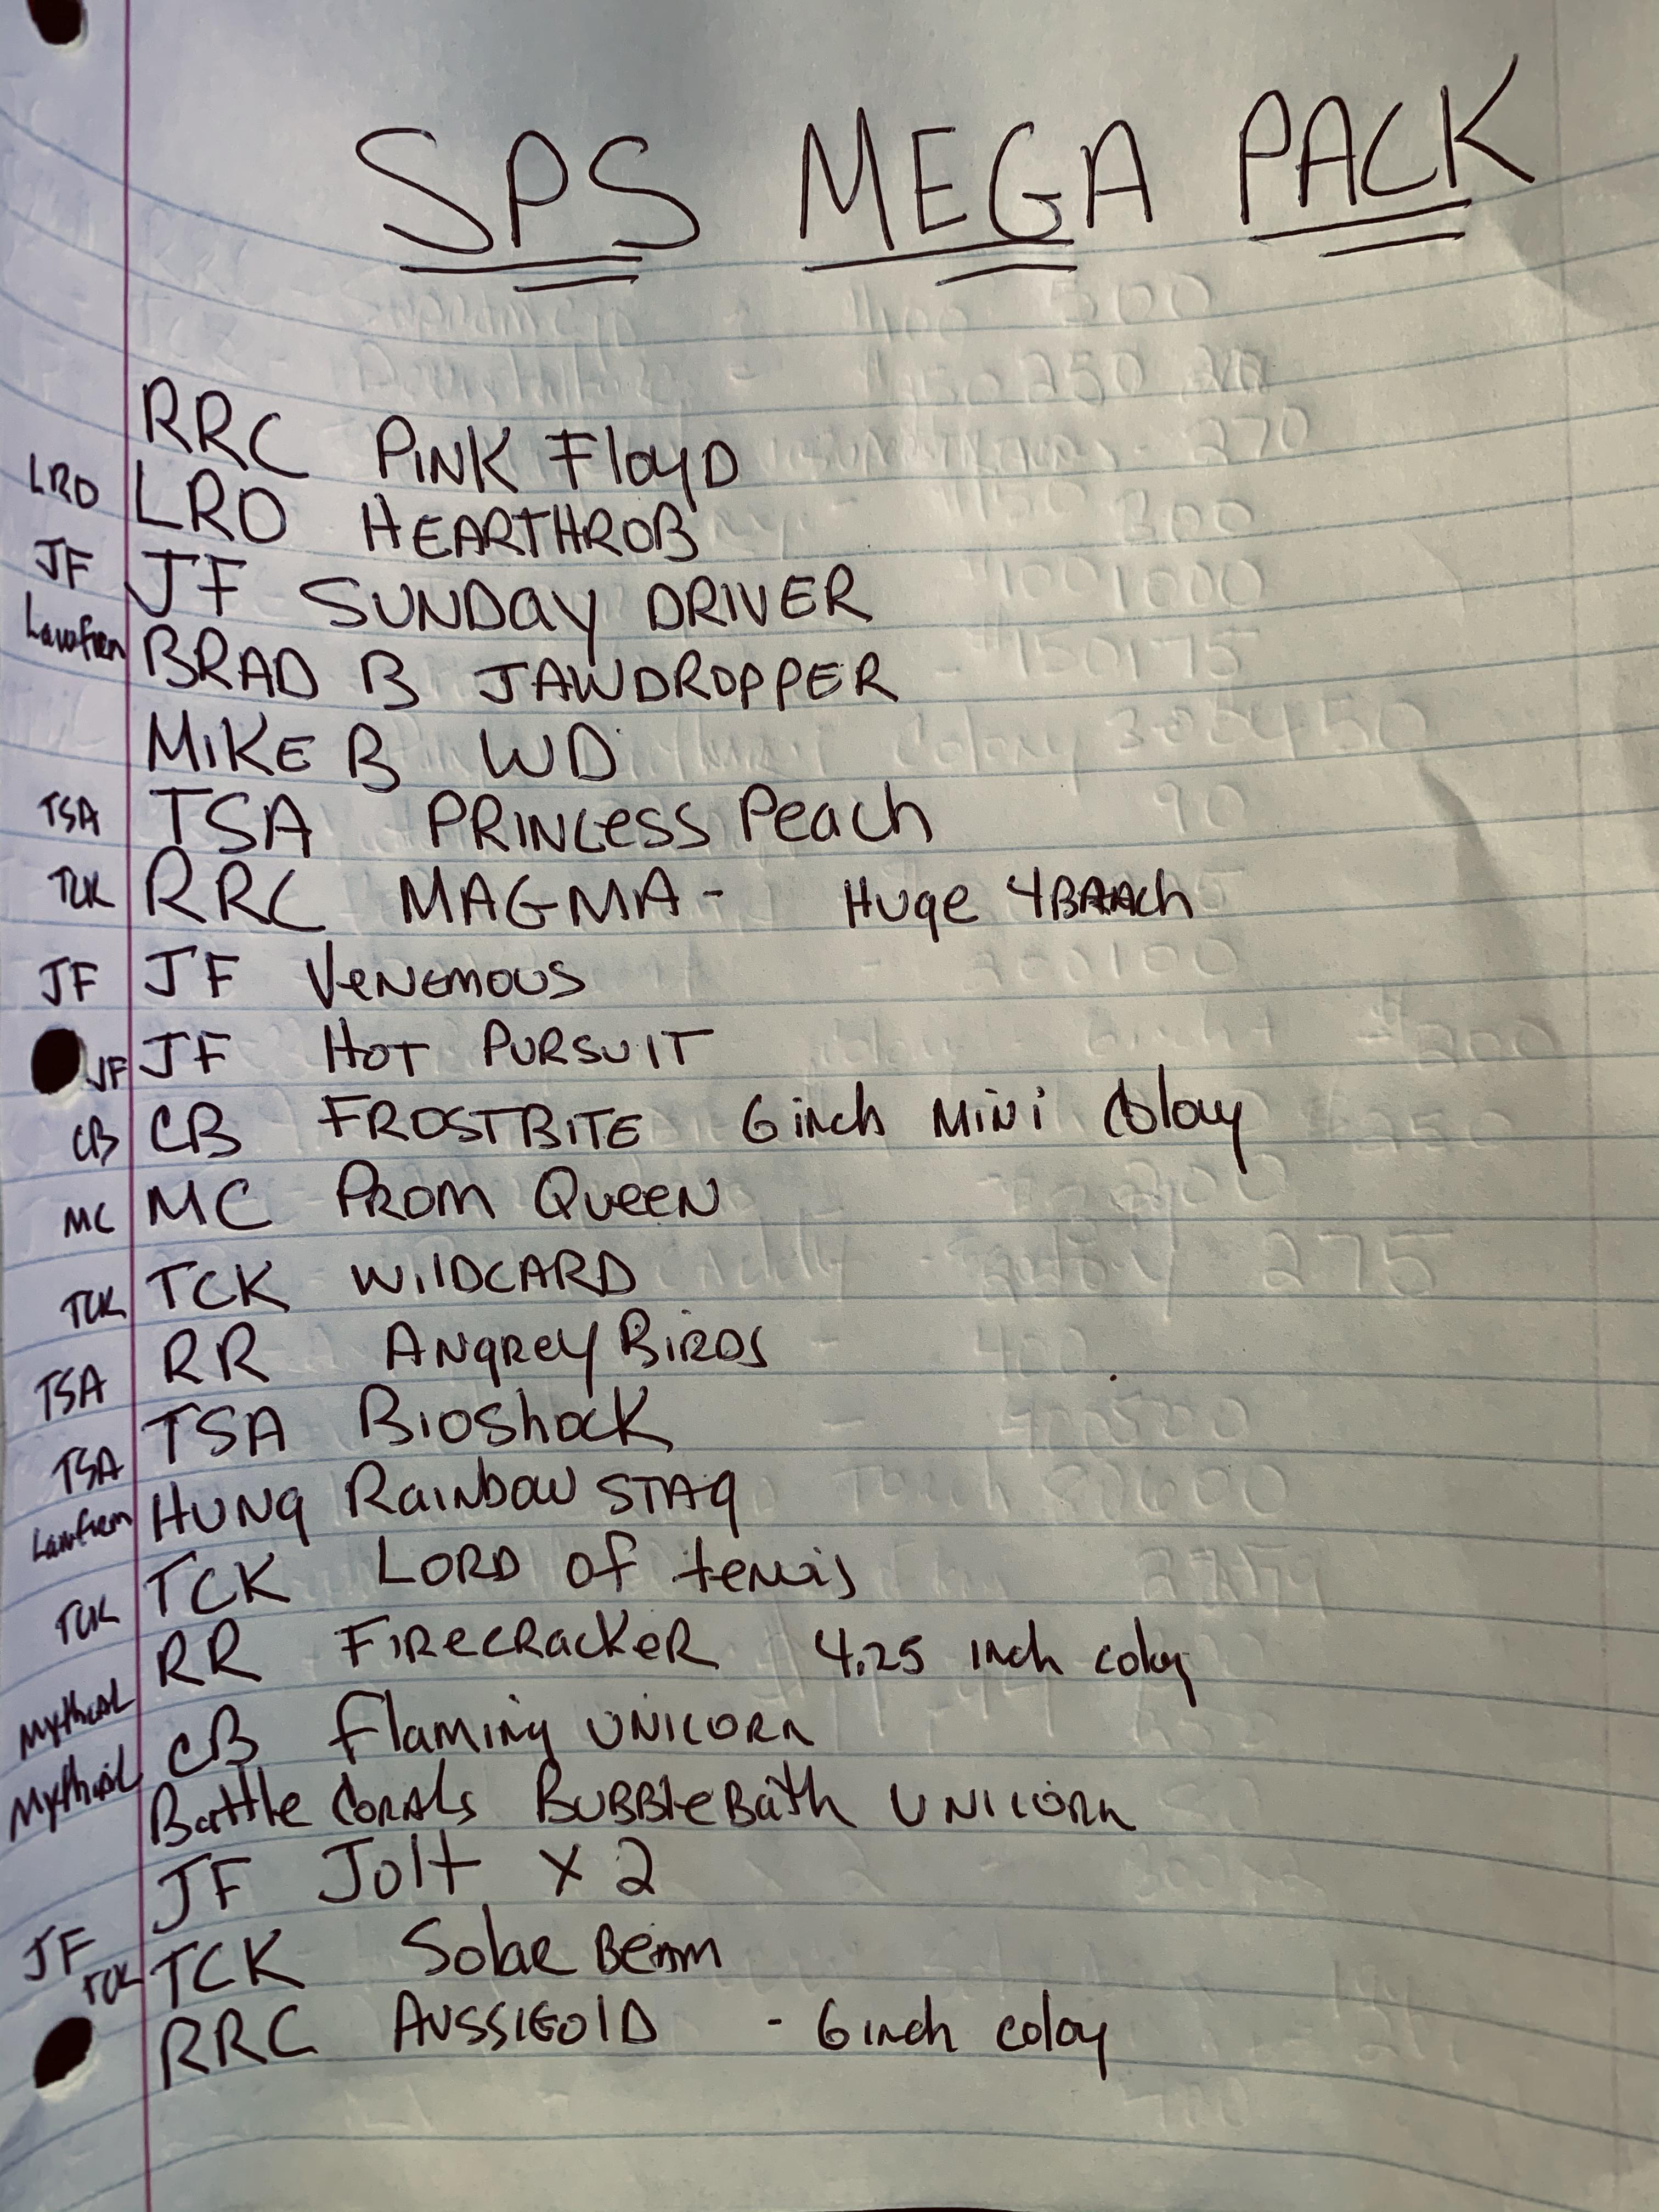 SPS MEGA PACK
RRC PINK FloyD
LRO LRO HEARTHROB
JF JF SUNDAY DRIVER
Lawfirm BRAD B JAWDROPPER
MIKE B WD
TSA TSA PRINCESS Peach
TCK RRC MAGMA - Huge 4BRAnch
JF JF VeNEmOUS
JF JF HOT PURSUIT
CB CB FROSTBITE 6 inch MINi Colony
MC MC PROM QUEEN
TCK TCK WIlDCARD
TSA RR ANgRey BiRDS
TSA TSA BioShock
Lawfirm HUNg RaiNbow STAg
TCK TCK LORD of tennis
RR FiRecRackeR 4.25 inch colony
Mythical CB flaming UNICORn
Mythical Battle CorAls BUBBleBath UNICORn
JF Jolt x 2
JF TCK TCK Solar Beam
RRC AUSSIEGOlD - 6 inch colony
500
250
270
300
1000
90
200
275